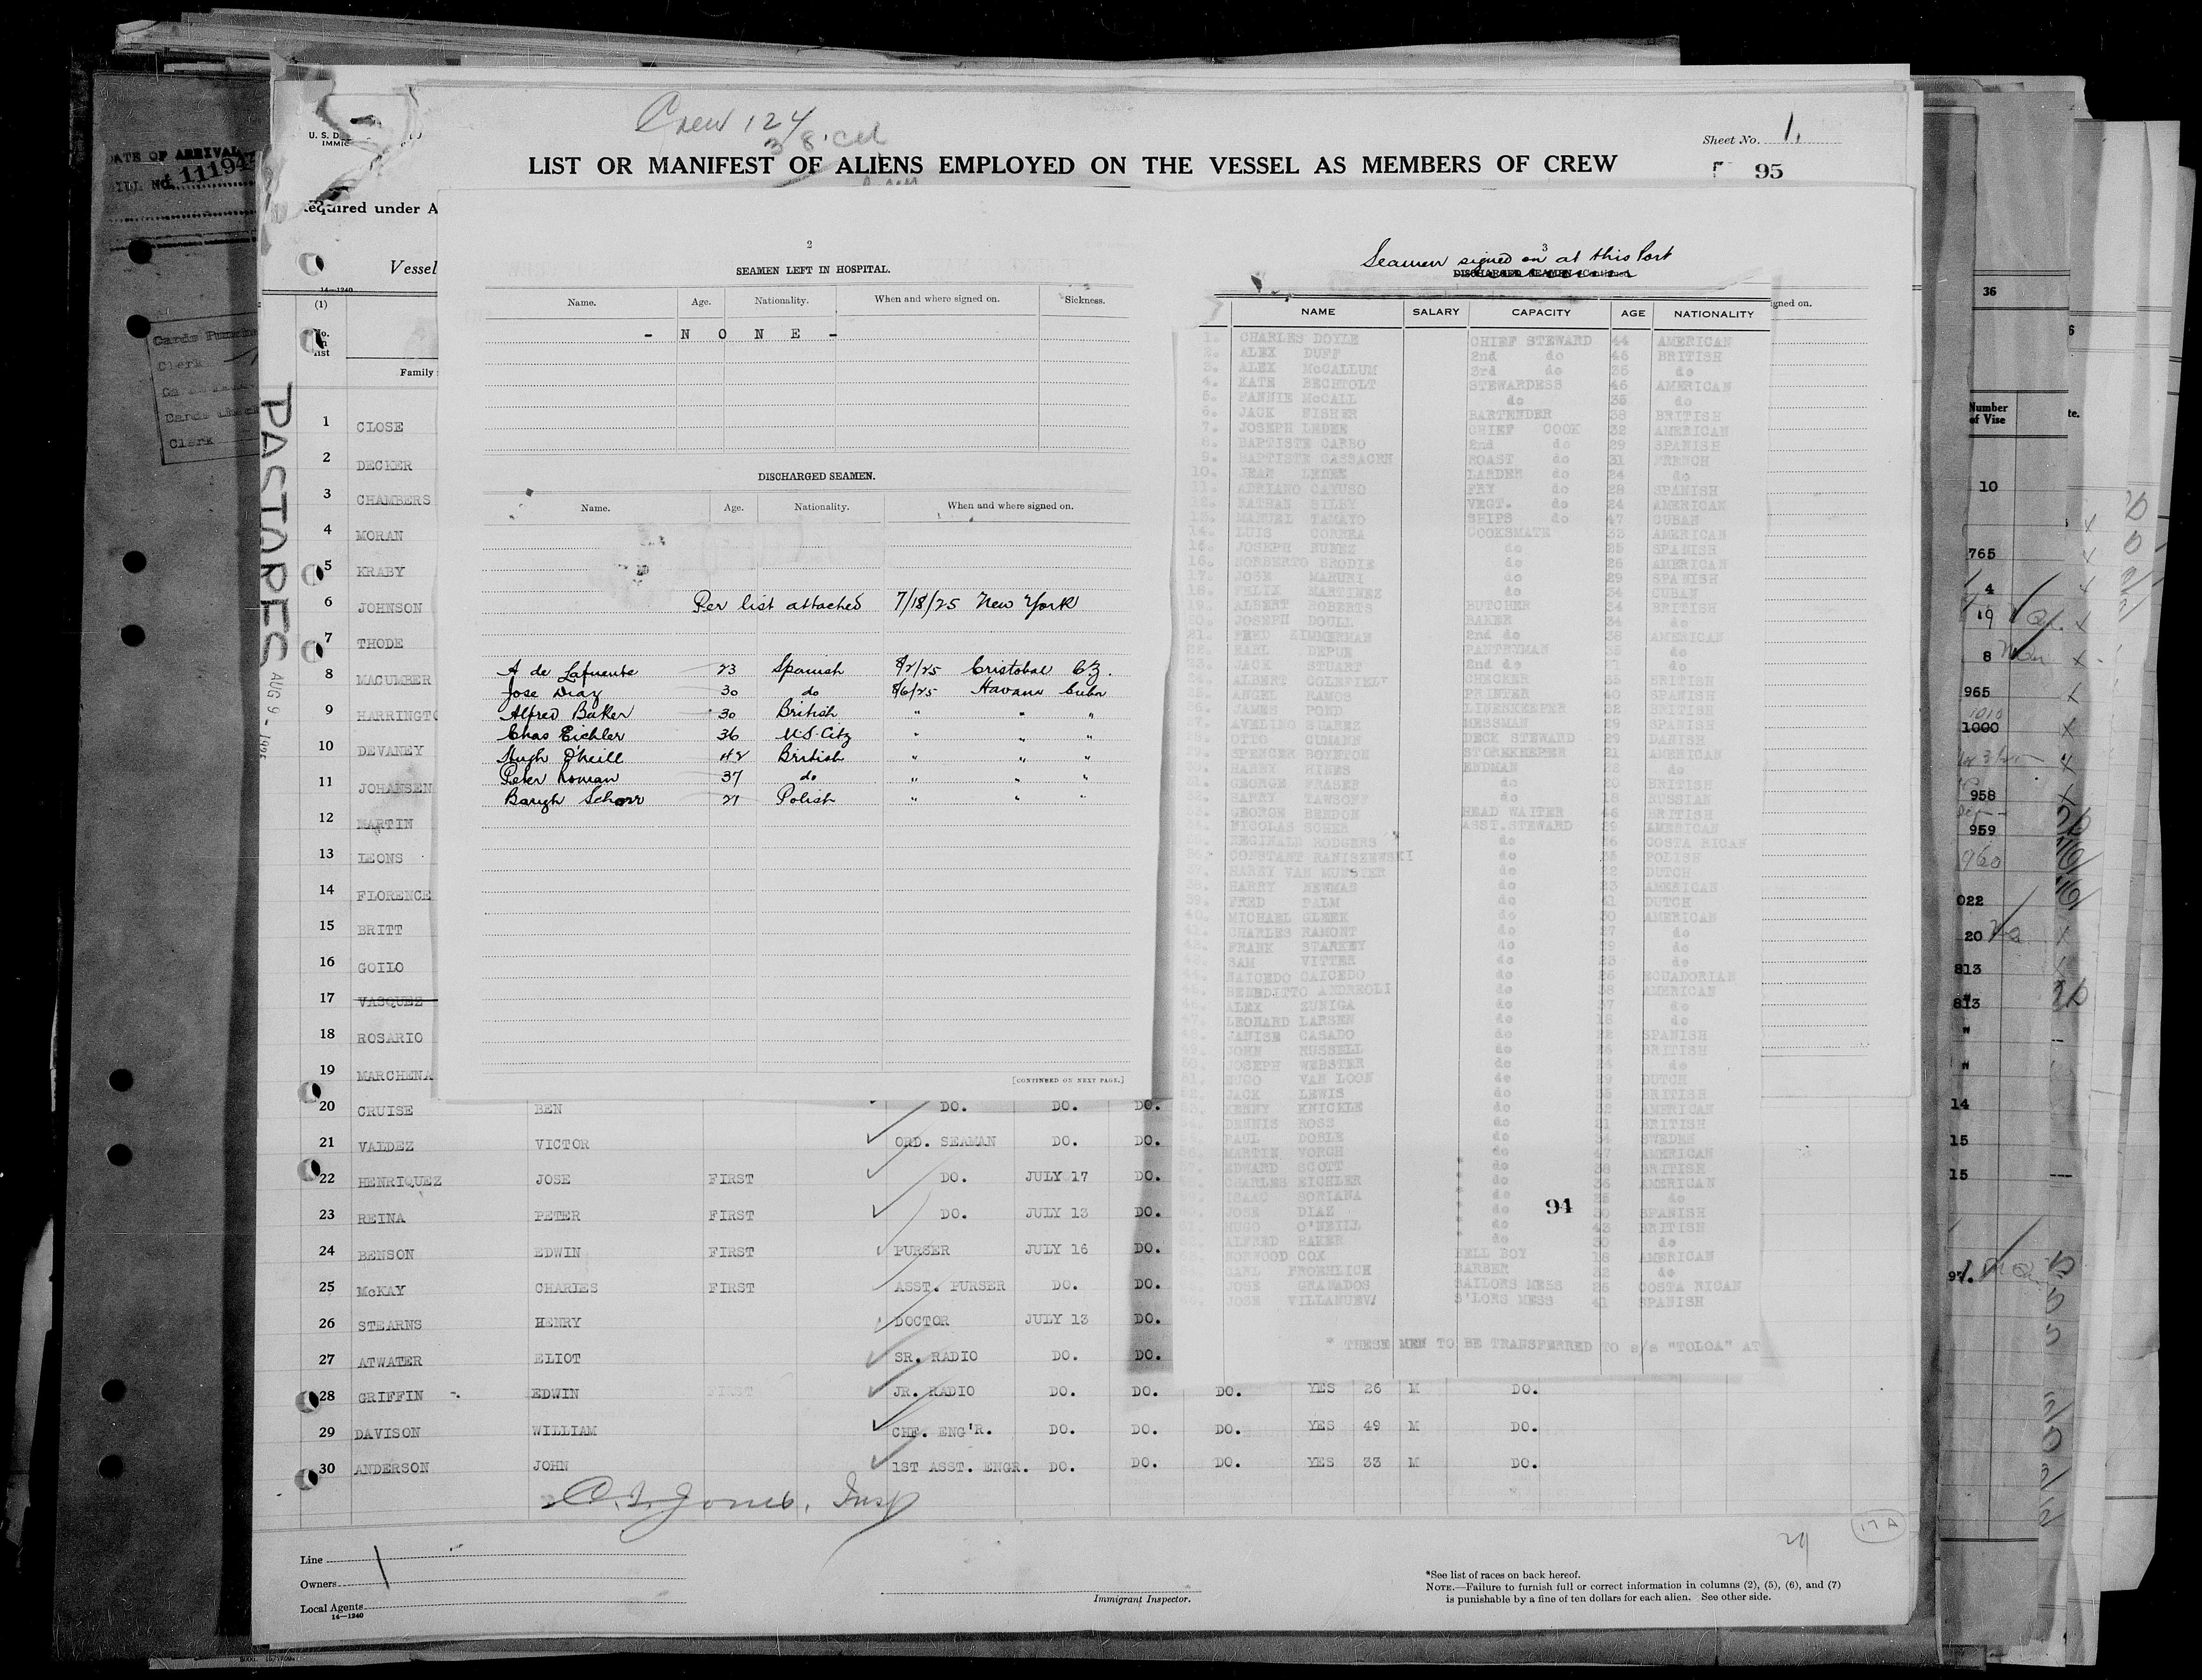 Crew 124
Sheet No. 1.
LIST OR MANIFEST OF ALIENS EMPLOYED ON THE VESSEL AS MEMBERS OF CREW
95
DATE OF ARRIVAL
111942
Required under A
Vessel
14—1240
(1)
Family
PASTORES AUG 9 -
2
SEAMEN LEFT IN HOSPITAL.
Name. Age. Nationality. When and where signed on. Sickness.
- N O N E -
DISCHARGED SEAMEN.
Name. Age. Nationality. When and where signed on.
Per list attached 7/18/25 New York
A de Lafuente 23 Spanish 8/2/25 Cristobal C.Z.
Jose Diaz 30 do 8/6/25 Havana Cuba
Alfred Baker 30 British " " "
Chas Eichler 36 U.S. Citz " " "
Hugh O'Neill 42 British " " "
Peter Roman 37 do " " "
Barigh Schorr 21 Polish " " "
[CONTINUED ON NEXT PAGE.]
3
Seamen signed on at this Port
DISCHARGED SEAMEN—Continued.
gned on.
NAME SALARY CAPACITY AGE NATIONALITY
1. CHARLES DOYLE CHIEF STEWARD 44 AMERICAN
2. ALEX DUFF 2nd do 46 BRITISH
3. ALEX McCALLUM 3rd do 35 do
4. KATE BECHTOLT STEWARDESS 46 AMERICAN
5. FANNIE McCALL do 35 do
6. JACK FISHER BARTENDER 38 BRITISH
7. JOSEPH LEDEE CHIEF COOK 32 AMERICAN
8. BAPTISTE CARBO 2nd do 29 SPANISH
9. BAPTISTE GASSACRN ROAST do 31 FRENCH
10. JEAN LEDEE LARDER do 24 do
11. ADRIANO CAYUSO FRY do 28 SPANISH
12. NATHAN SILBY VEGT. do 24 AMERICAN
13. MANUEL TAMAYO SHIPS do 47 CUBAN
14. LUIS CORREA COOKSMATE 33 AMERICAN
15. JOSEPH NUNEZ do 25 SPANISH
16. NORBERTO BRODIE do 26 AMERICAN
17. JOSE MARURI do 29 SPANISH
18. FELIX MARTINEZ do 34 CUBAN
19. ALBERT ROBERTS BUTCHER 34 BRITISH
20. JOSEPH DOULL BAKER 34 do
21. FRED ZIMMERMAN 2nd do 38 AMERICAN
22. EARL DEPUE PANTRYMAN do
JACK STUART 2nd do do
ALBERT COLDFIELT CHECKER 35 BRITISH
ANGEL RAMOS PRINTER 40 SPANISH
JAMES POND LINENKEEPER 32 BRITISH
AVELINO SUAREZ MESSMAN 29 SPANISH
OTTO CUMANN DECK STEWARD 29 DANISH
SPENCER BOYNTON STOREKEEPER 21 AMERICAN
HARRY HINES ENDMAN do
GEORGE FRASER do 20 BRITISH
HARRY do 18 RUSSIAN
GEORGE BENDON HEAD WAITER 46 BRITISH
NICOLAS SCHER ASST.STEWARD 29 AMERICAN
REGINALD RODGERS do 26 COSTA RICAN
CONSTANT RANISZEWSKI do 35 POLISH
HARRY VAN MUNSTER do 22 DUTCH
HARRY NEWMAN do 23 AMERICAN
39. FRED PALM do 41 DUTCH
40. MICHAEL GLEEK do 30 AMERICAN
41. CHARLES RAMONT do 37 do
42. FRANK STARKEY do 29 do
SAM VITTER do 23 do
NAICEDO CAICEDO do 26 ECUADORIAN
BENEDITTO ANDREOLI do 38 AMERICAN
ALEX ZUNIGA do 37 do
47. LEONARD LARSEN do 18 do
JANISE CASADO do 22 SPANISH
JOHN RUSSELL do 26 BRITISH
JOSEPH WEBSTER do 24 do
HUGO VAN LOON do 29 DUTCH
JACK LEWIS do 35 BRITISH
KENNY KNICKLE do 32 AMERICAN
DENNIS ROSS do 21 BRITISH
PAUL DOBLE do 34 SWEDEN
MARTIN VORCH do 47 AMERICAN
EDWARD SCOTT * do 38 BRITISH
CHARLES EICHLER * do 36 AMERICAN
ISAAC SORIANA * do 25 do
JOSE DIAZ * do 30 SPANISH
HUGO O'NEILL * do 43 BRITISH
ALFRED BAKER * do 30 do
NORWOOD COX BELL BOY 18 AMERICAN
CARL FROEHLICH BARBER 32 do
JOSE GRANADOS SAILORS MESS 26 COSTA RICAN
JOSE VILLANUEVA S'LORS MESS 41 SPANISH
94
* THESE MEN TO BE TRANSFERRED TO s/s "TOLOA" AT
1 CLOSE
2 DECKER
3 CHAMBERS
4 MORAN
5 KRABY
6 JOHNSON
7 THODE
8 MACUMBER
9 HARRINGTO
10 DEVANEY
11 JOHANSEN
12 MARTIN
13 LEONS
14 FLORENCE
15 BRITT
16 GOILO
17 VASQUEZ
18 ROSARIO
19 MARCHENA
20 CRUISE BEN DO. DO. DO.
21 VALDEZ VICTOR ORD. SEAMAN DO. DO.
22 HENRIQUEZ JOSE FIRST DO. JULY 17 DO.
23 REINA PETER FIRST DO. JULY 13 DO.
24 BENSON EDWIN FIRST PURSER JULY 16 DO.
25 McKAY CHARLES FIRST ASST. PURSER DO. DO.
26 STEARNS HENRY DOCTOR JULY 13 DO.
27 ATWATER ELIOT SR. RADIO DO. DO.
28 GRIFFIN EDWIN FIRST JR. RADIO DO. DO. DO. YES 26 M DO.
29 DAVISON WILLIAM CHF. ENG'R. DO. DO. DO. YES 49 M DO.
30 ANDERSON JOHN 1ST ASST. ENGR. DO. DO. DO. YES 33 M DO.
Jones, Insp
17 A
Line
Owners
Local Agents
14—1240
Immigrant Inspector.
*See list of races on back hereof.
NOTE.—Failure to furnish full or correct information in columns (2), (5), (6), and (7)
is punishable by a fine of ten dollars for each alien. See other side.
36
Number
of Vise
10
765
4
19
8
965
1000
958
959
960
022
20
813
813
14
15
15